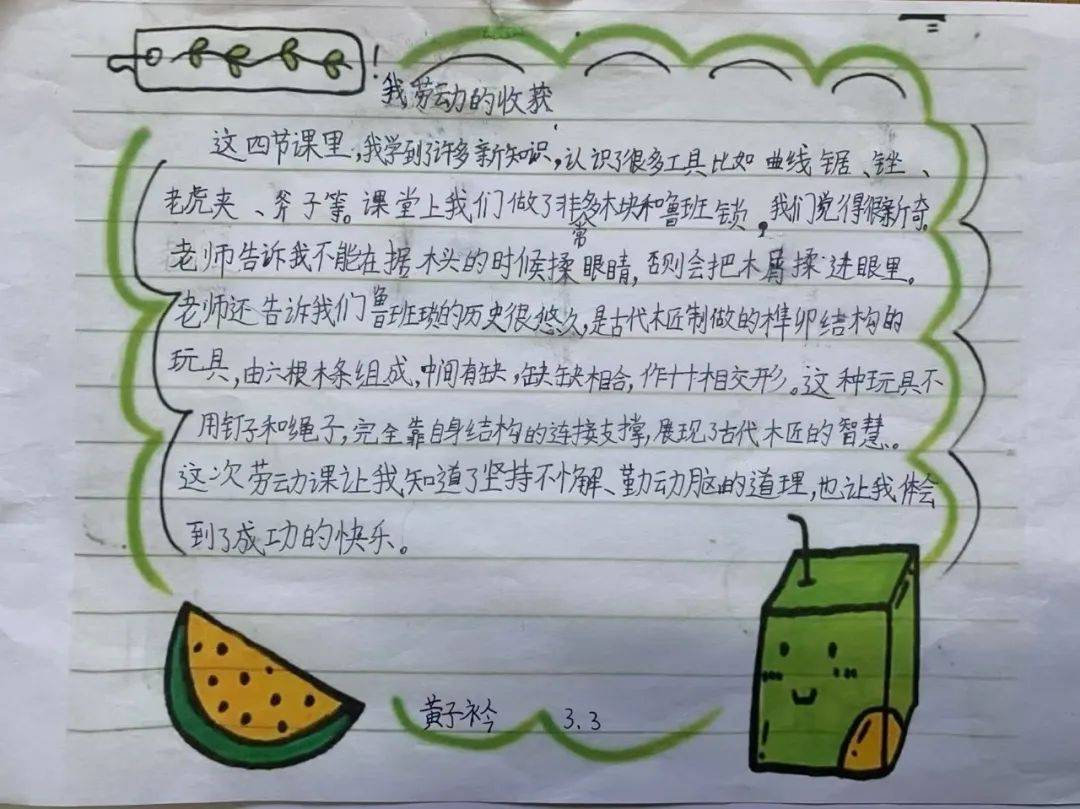 我劳动的收获
这四节课里，我学到了许多新知识，认识了很多工具比如曲线锯、锉、
老虎夹、斧子等。课堂上我们做了非常多木块和鲁班锁，我们觉得很新奇。
老师告诉我不能在据木头的时候揉眼睛，否则会把木屑揉进眼里。
老师还告诉我们鲁班琐的历史很悠久，是古代木匠制做的榫卯结构的
玩具，由六根木条组成，中间有缺，缺缺相合，作十十相交形。这种玩具不
用钉子和绳子，完全靠自身结构的连接支撑，展现了古代木匠的智慧。
这次劳动课让我知道了坚持不懈、勤动脑的道理，也让我体会
到了成功的快乐。
黄子衿 3.3